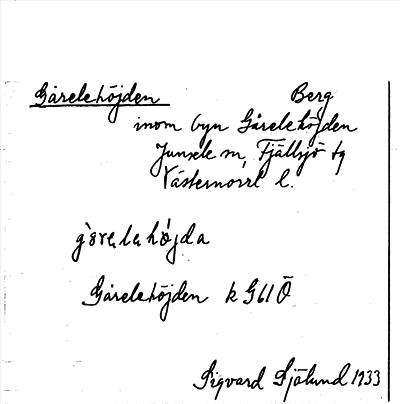 Gårelehöjden Berg
inom byn Gårelehöjden
Junsele sn, Fjällsjö tg
Västernorrl l.
gårelehöjda
Gårelehöjden k G61Ö
Sigvard Sjölund 1933